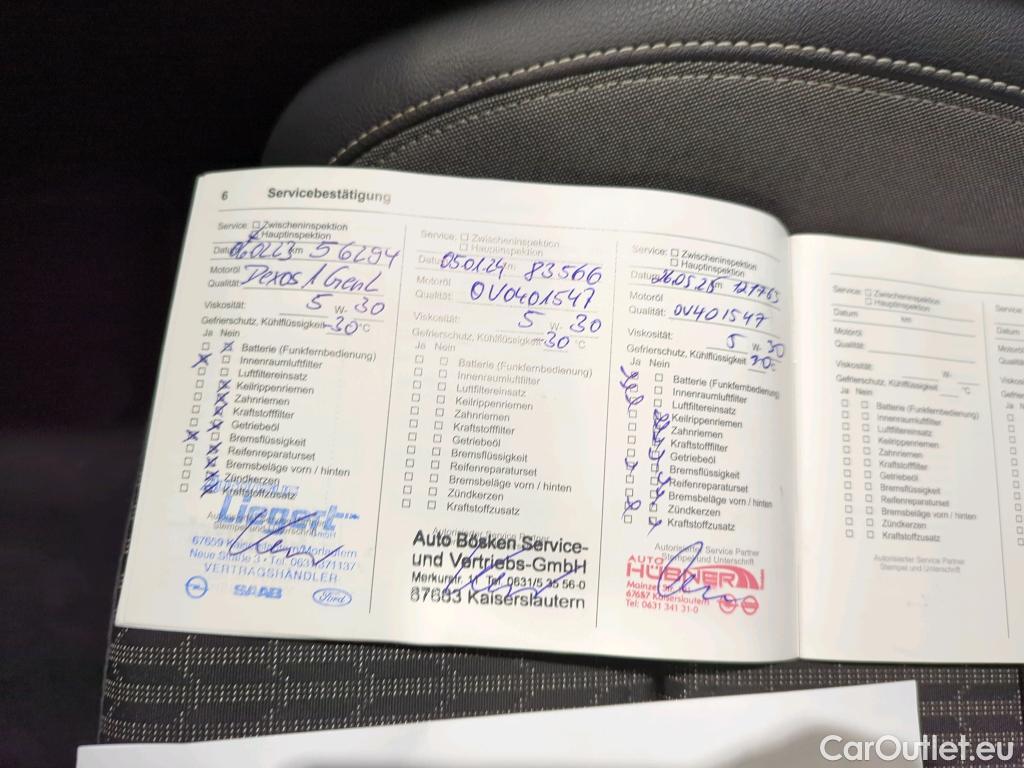 6 Servicebestätigung
Service: Zwischeninspektion
Hauptinspektion
Datum 06.02.23 km 56294
Motoröl
Qualität: Dexos 1 Gen2
Viskosität: 5 W- 30
Gefrierschutz, Kühlflüssigkeit -30 °C
Ja Nein
Batterie (Funkfernbedienung)
Innenraumluftfilter
Luftfiltereinsatz
Keilrippenriemen
Zahnriemen
Kraftstofffilter
Getriebeöl
Bremsflüssigkeit
Reifenreparaturset
Bremsbeläge vorn / hinten
Zündkerzen
Kraftstoffzusatz
Liegert
Stempel und Unterschrift
67659 Kaiserslautern/Morlautern
Neue Straße 3 • Tel. 0631/371137
VERTRAGSHÄNDLER
SAAB Ford
Service: Zwischeninspektion
Hauptinspektion
Datum 05.01.24 km 83566
Motoröl
Qualität: OV0401547
Viskosität: 5 W- 30
Gefrierschutz, Kühlflüssigkeit -30 °C
Ja Nein
Batterie (Funkfernbedienung)
Innenraumluftfilter
Luftfiltereinsatz
Keilrippenriemen
Zahnriemen
Kraftstofffilter
Getriebeöl
Bremsflüssigkeit
Reifenreparaturset
Bremsbeläge vorn / hinten
Zündkerzen
Kraftstoffzusatz
Autorisierter Service Partner
Auto Bösken Service-
und Vertriebs-GmbH
Merkurstr. Tel. 0631/5 35 56-0
67663 Kaiserslautern
Service: Zwischeninspektion
Hauptinspektion
Datum 26.05.25 km 121763
Motoröl
Qualität: OV401547
Viskosität: 5 W- 30
Gefrierschutz, Kühlflüssigkeit 30 °C
Ja Nein
Batterie (Funkfernbedienung)
Innenraumluftfilter
Luftfiltereinsatz
Keilrippenriemen
Zahnriemen
Kraftstofffilter
Getriebeöl
Bremsflüssigkeit
Reifenreparaturset
Bremsbeläge vorn / hinten
Zündkerzen
Kraftstoffzusatz
Autorisierter Service Partner
Stempel und Unterschrift
AUTO
HÜBNER
Mainzer
67657 Kaiserslautern
Tel: 0631 341 31-0
Service: Zwischeninspektion
Hauptinspektion
Datum km
Motoröl
Qualität:
Viskosität: W-
Gefrierschutz, Kühlflüssigkeit °C
Ja Nein
Batterie (Funkfernbedienung)
Innenraumluftfilter
Luftfiltereinsatz
Keilrippenriemen
Zahnriemen
Kraftstofffilter
Getriebeöl
Bremsflüssigkeit
Reifenreparaturset
Bremsbeläge vorn / hinten
Zündkerzen
Kraftstoffzusatz
Autorisierter Service Partner
Stempel und Unterschrift
CarOutlet.eu